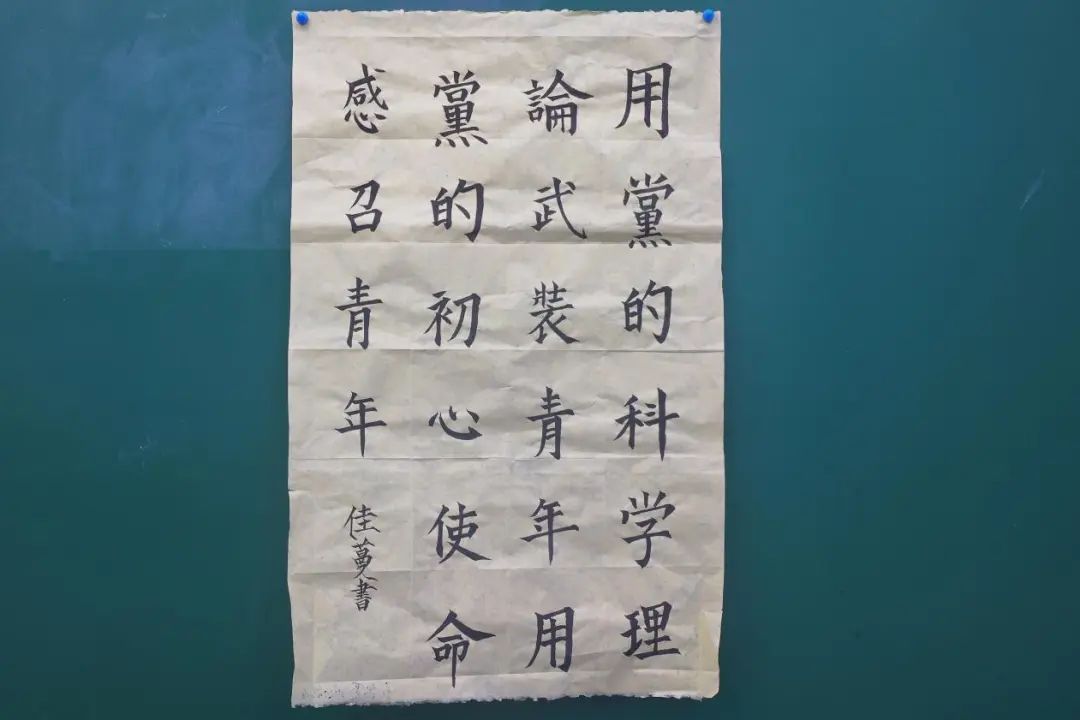 用黨的科学理
論武裝青年用
黨的初心使命
感召青年
佳蔓書